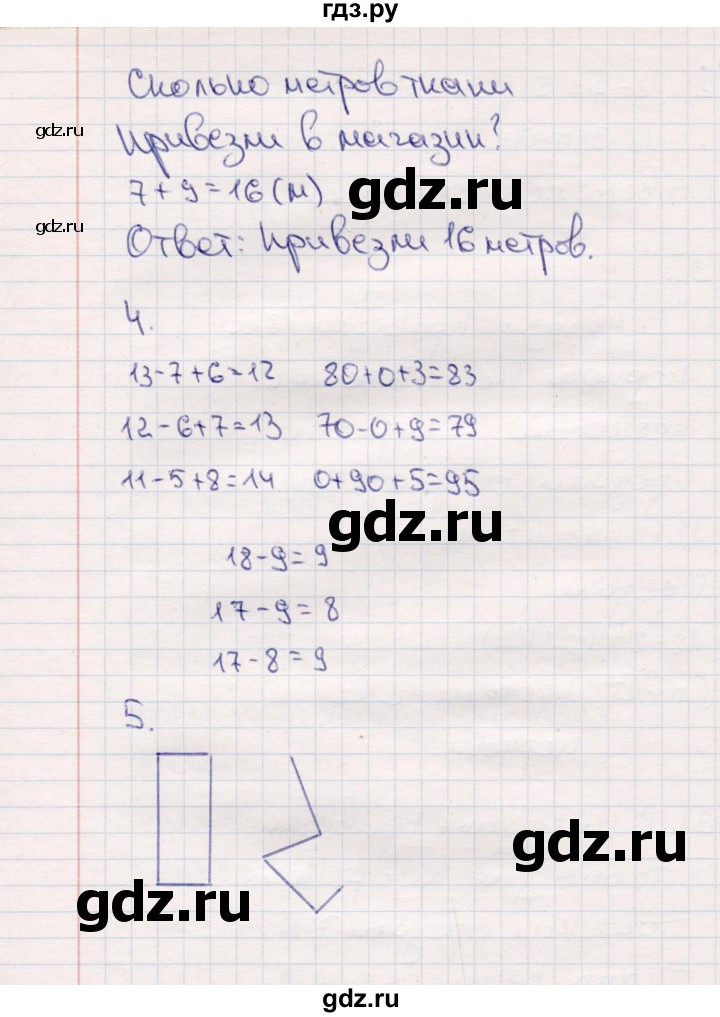 гдз.ру
Сколько метров ткани
gdz.ru
привезли в магазин?
7+9=16(м)
gdz.ru
gdz.ru
Ответ: привезли 16 метров.
4.
13-7+6=12 80+0+3=83
12-6+7=13 70-0+9=79
11-5+8=14 0+90+5=95
gdz.ru
18-9=9
17-9=8
17-8=9
5.
gdz.ru
gdz.ru
gdz.ru